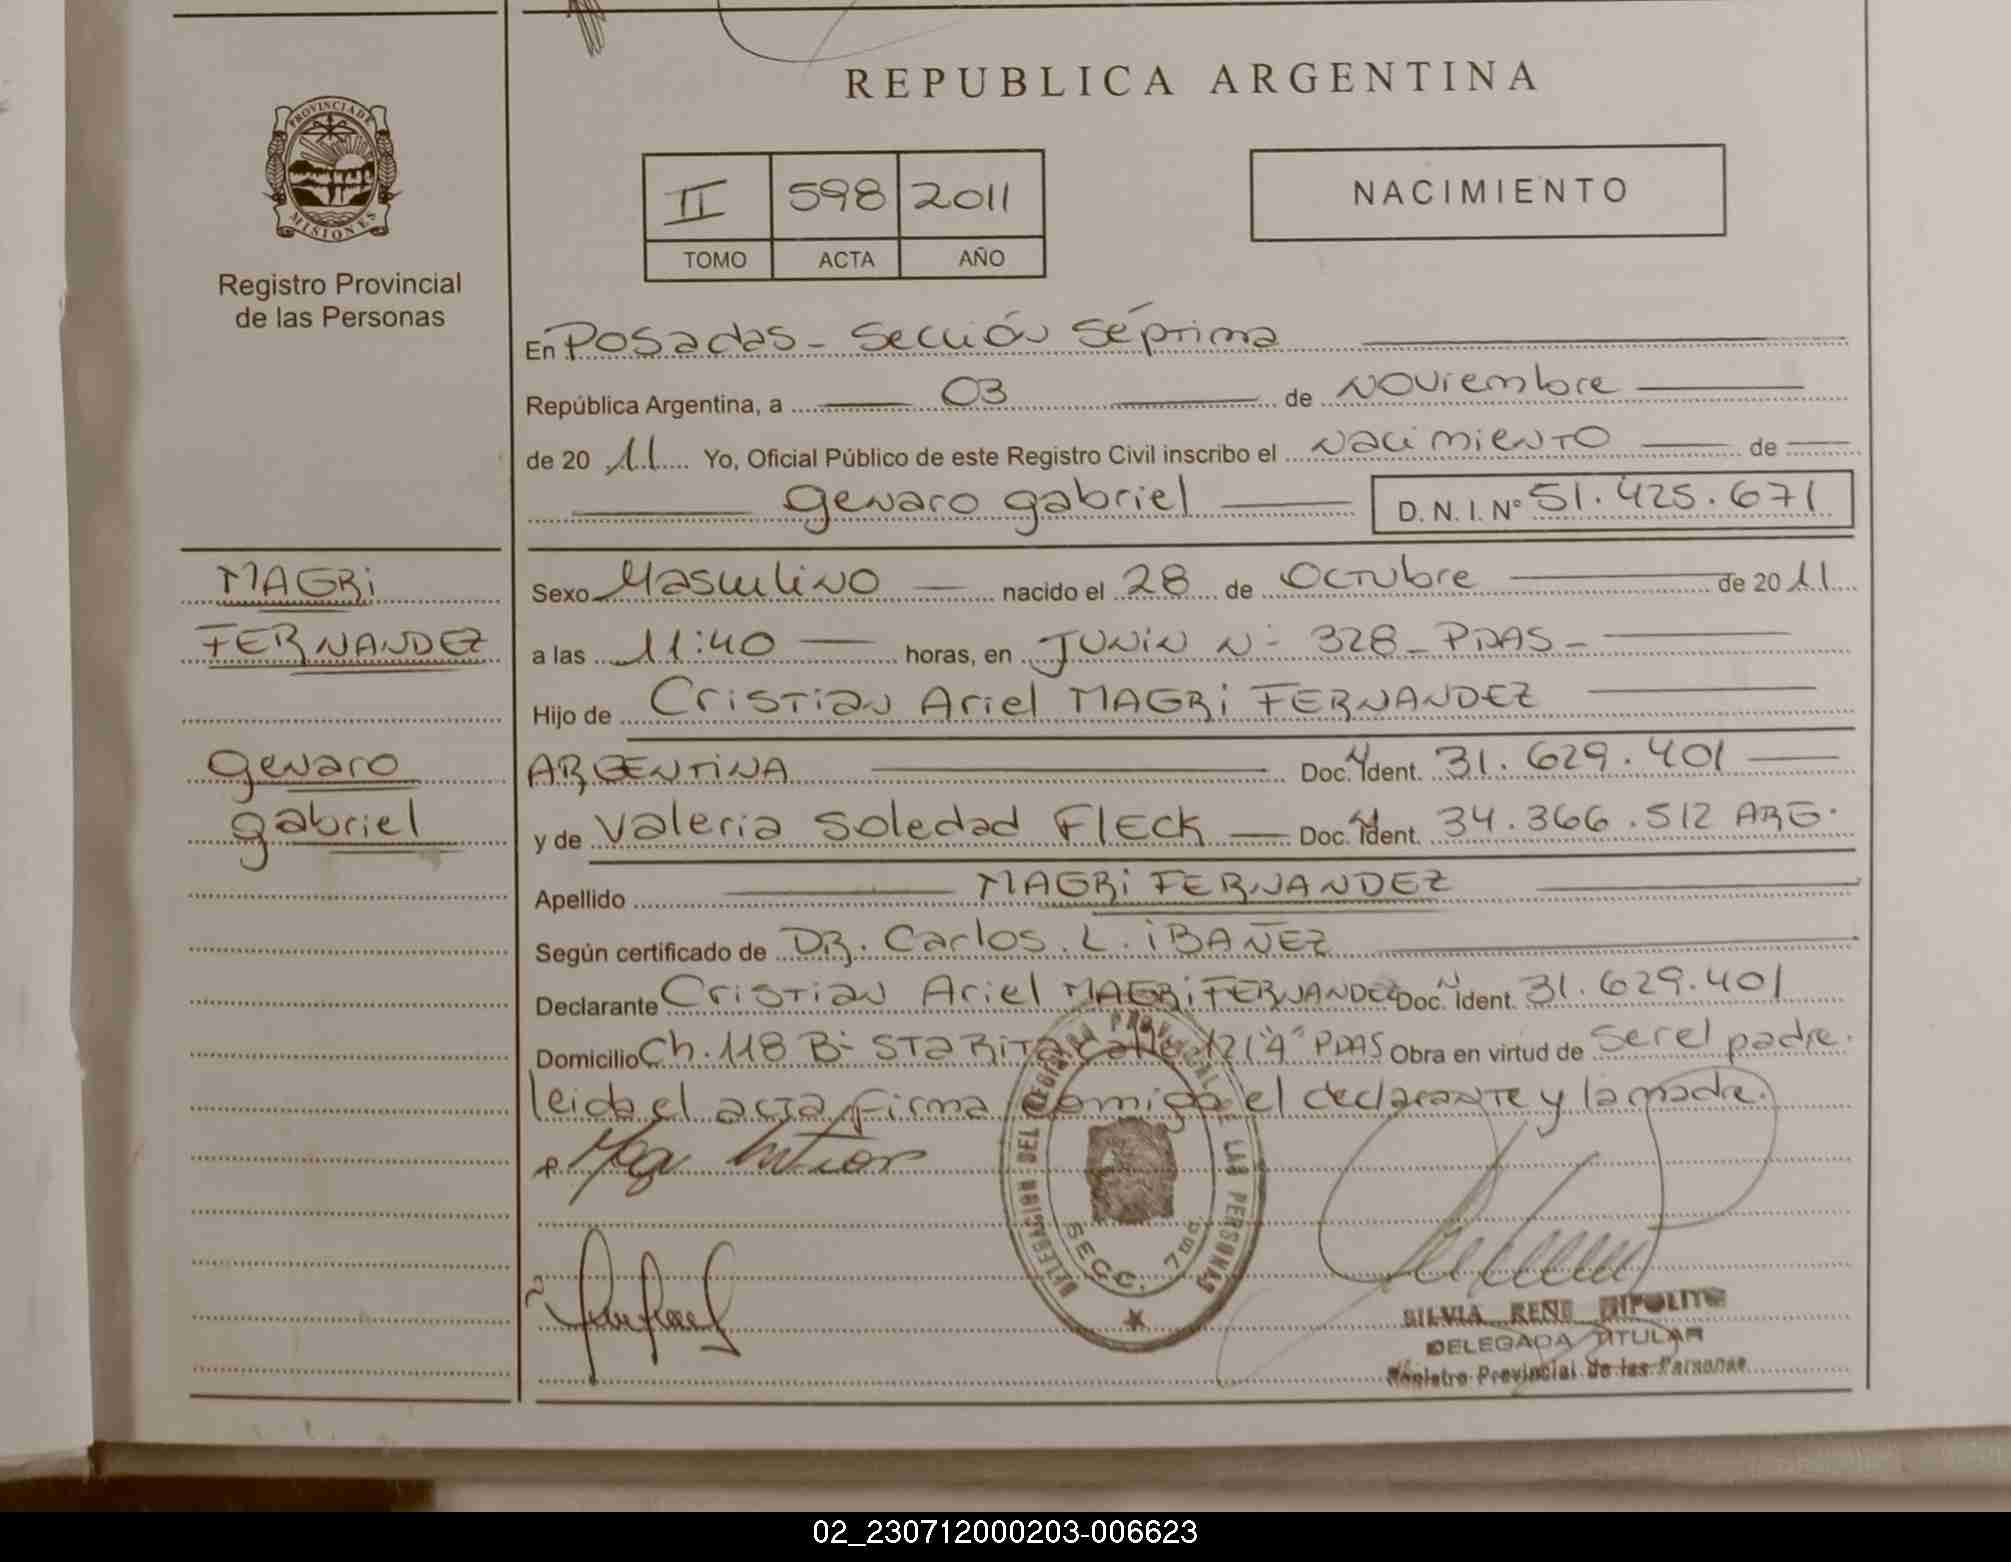 REPUBLICA ARGENTINA
PROVINCIA DE MISIONES
Registro Provincial
de las Personas
II 598 2011
TOMO ACTA AÑO
NACIMIENTO
En Posadas - Sección Séptima
República Argentina, a 03 de Noviembre
de 20 11 Yo, Oficial Público de este Registro Civil inscribo el Nacimiento de
Genaro Gabriel D.N.I. Nº 51.425.671
MAGRI
FERNANDEZ
Genaro
Gabriel
Sexo Masculino nacido el 28 de Octubre de 20 11
a las 11:40 horas, en JUNIN Nº 328 - PDAS -
Hijo de Cristian Ariel MAGRI FERNANDEZ
ARGENTINA Doc. N Ident. 31.629.401
y de Valeria Soledad FLECK Doc. N Ident. 34.366.512 ARG.
Apellido MAGRI FERNANDEZ
Según certificado de DR. Carlos. L. IBAÑEZ
Declarante Cristian Ariel MAGRI FERNANDEZ Doc. N Ident. 31.629.401
Domicilio Ch. 118 Bº STA RITA Calle 121 "A" PDAS Obra en virtud de ser el padre.
leida el acta, firma comigo el declarante y la madre.
DELEGACION DEL REGISTRO PROVINCIAL DE LAS PERSONAS
SECC. 7ma
SILVIA RENE HIPOLITO
DELEGADA TITULAR
Registro Provincial de las Personas
02_230712000203-006623